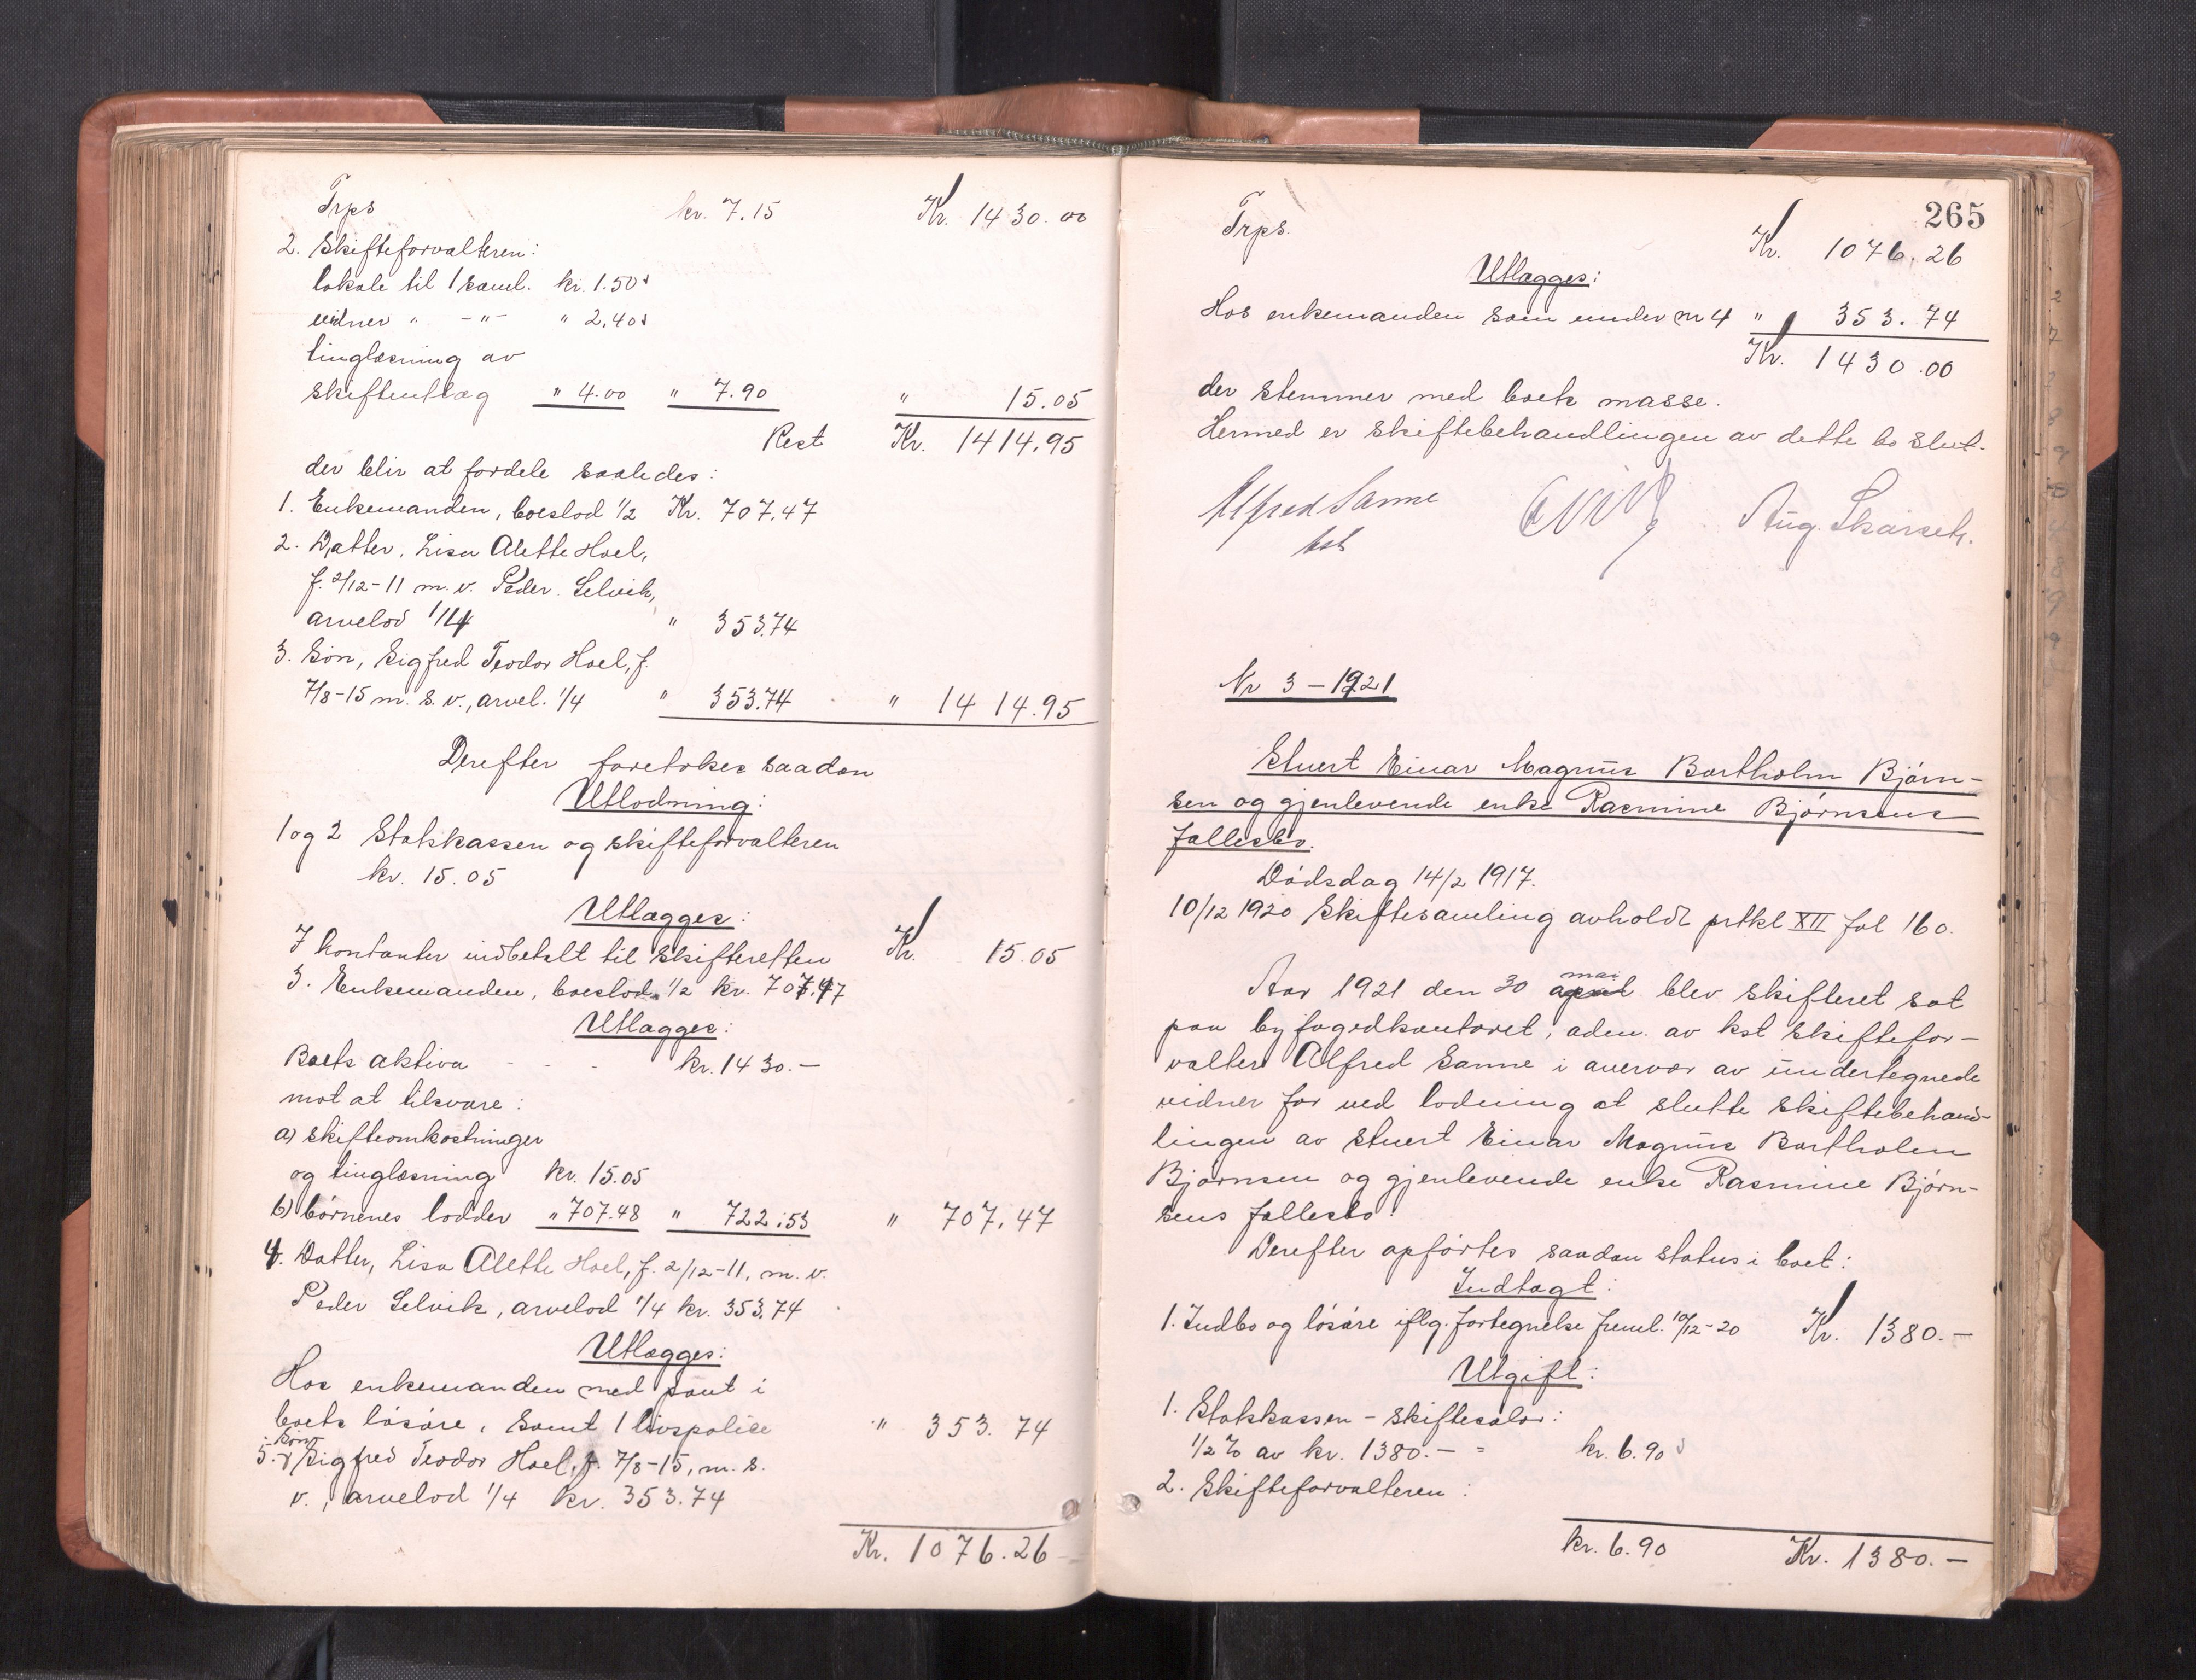 Trps kr. 7.15 Kr. 1430.00
2. Skifteforvalteren:
lokale til 1 saml. kr. 1.50
vidner " -"- " 2.40
tinglæsning av
skifteutlæg " 4.00 " 7.90 " 15.05
Rest Kr. 1414.95
der blir at fordele saaledes:
1. Enkemanden, boeslod 1/2 Kr. 707.47
2. Datter, Lisa Alette Hoel,
f. 2/12-11 m. v. Peder Selvik,
arvelod 1/4 " 353.74
3. Søn, Sigfred Teodor Hoel, f.
7/8-15 m. s. v., arvel. 1/4 " 353.74 " 1414.95
Derefter foretokes saadan
Utlodning:
1 og 2 Statskassen og skifteforvalteren
kr. 15.05
Utlægges:
I kontanter indbetalt til skifteretten Kr. 15.05
3. Enkemanden, boeslod 1/2 kr. 707.47
Utlægges:
Boets aktiva - - - kr. 1430.-
mot at tilsvare:
a) skifteomkostninger
og tinglæsning kr. 15.05
b) børnenes lodder " 707.48 " 722.53 " 707.47
4. Datter, Lisa Alette Hoel, f. 2/12-11, m. v.
Peder Selvik, arvelod 1/4 kr. 353.74
Utlægges:
Hos enkemanden med pant i
boets løsøre, samt 1 livspolice " 353.74
5. Søn Sigfred Teodor Hoel, f. 7/8-15, m. s.
v., arvelod 1/4 kr. 353.74
Kr. 1076.26
265
Trps. Kr. 1076.26
Utlægges:
Hos enkemanden som under nr 4 " 353.74
Kr. 1430.00
der stemmer med boets masse.
Hermed er skiftebehandlingen av dette bo slut.
Alfred Sanne Aug. Skarseth.
kst
Nr 3 - 1921
Stuert Einar Magnus Bartholm Bjørn-
sen og gjenlevende enke Rasmine Bjørnsens
fællesbo.
Dødsdag 14/2 1917.
10/12 1920 Skiftesamling avholdt prtkl XII fol 160.
Aar 1921 den 30 april mai blev skifteret sat
paa byfogedkontoret, adm. av kst skiftefor-
valter Alfred Sanne i overvær av undertegnede
vidner for ved lodning at slutte skiftebehand-
lingen av stuert Einar Magnus Bartholm
Bjørnsen og gjenlevende enke Rasmine Bjørn-
sens fællesbo.
Derefter opførtes saadan status i boet:
Indtægt:
1. Indbo og løsøre iflg. fortegnelse freml. 10/12-20 Kr. 1380.-
Utgift:
1. Statskassen - skiftesalær:
1/2 % av kr. 1380.- = kr. 6.90
2. Skifteforvalteren:
kr. 6.90 Kr. 1380.-